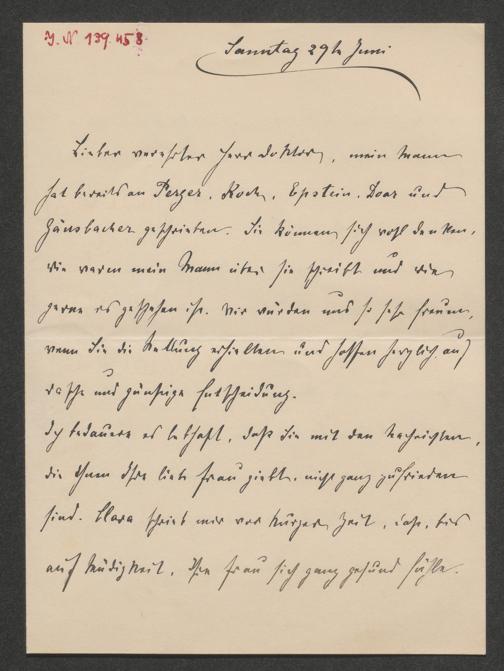 J. N 139.458
Sonntag 29te Juni
Lieber verehrter Herr Doktor, mein Mann
hat bereits an Perger, Koch, Epstein, Door und
Gänsbacher geschrieben. Sie können sich wohl denken,
wie warm mein Mann über Sie schreibt und wie
gerne es geschehen ist. Wir würden uns so sehr freuen,
wenn Sie die Stellung erhielten und hoffen herzlich auf
rasche und günstige Entscheidung.
Ich bedauere es lebhaft, daß Sie mit den Nachrichten,
die Ihnen Ihre liebe Frau giebt, nicht ganz zufrieden
sind. Clara schrieb mir vor kurzer Zeit, daß, bis
auf Müdigkeit, Ihre Frau sich ganz gesund fühle.